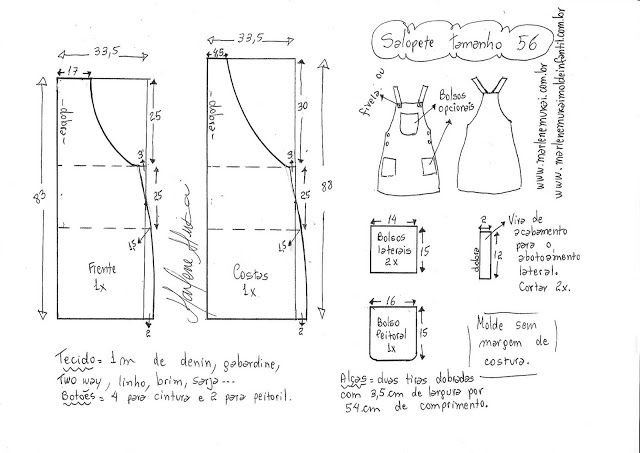 Salopete tamanho 56
33,5
17
-dobra-
25
83
25
3
1,5
Frente
1x
2
33,5
8,5
-dobra-
30
88
25
3
1,5
Costas
1x
2
Marlene Mukai
fivela ou
Bolsos
opcionais
www.marlenemukai.com.br
www.marlenemukaimoldeinfantil.com.br
14
Bolsos
laterais
2x
15
2
dobra
12
Vira de
acabamento
para o
abotoamento
lateral.
Cortar 2x.
16
Bolso
Peitoral
1x
15
Molde sem
margem de
costura.
Tecido = 1m de denin, gabardine,
Two way, linho, brim, sarja...
Botões = 4 para cintura e 2 para peitoril.
Alças = duas tiras dobradas
com 3,5 cm de largura por
54 cm de comprimento.